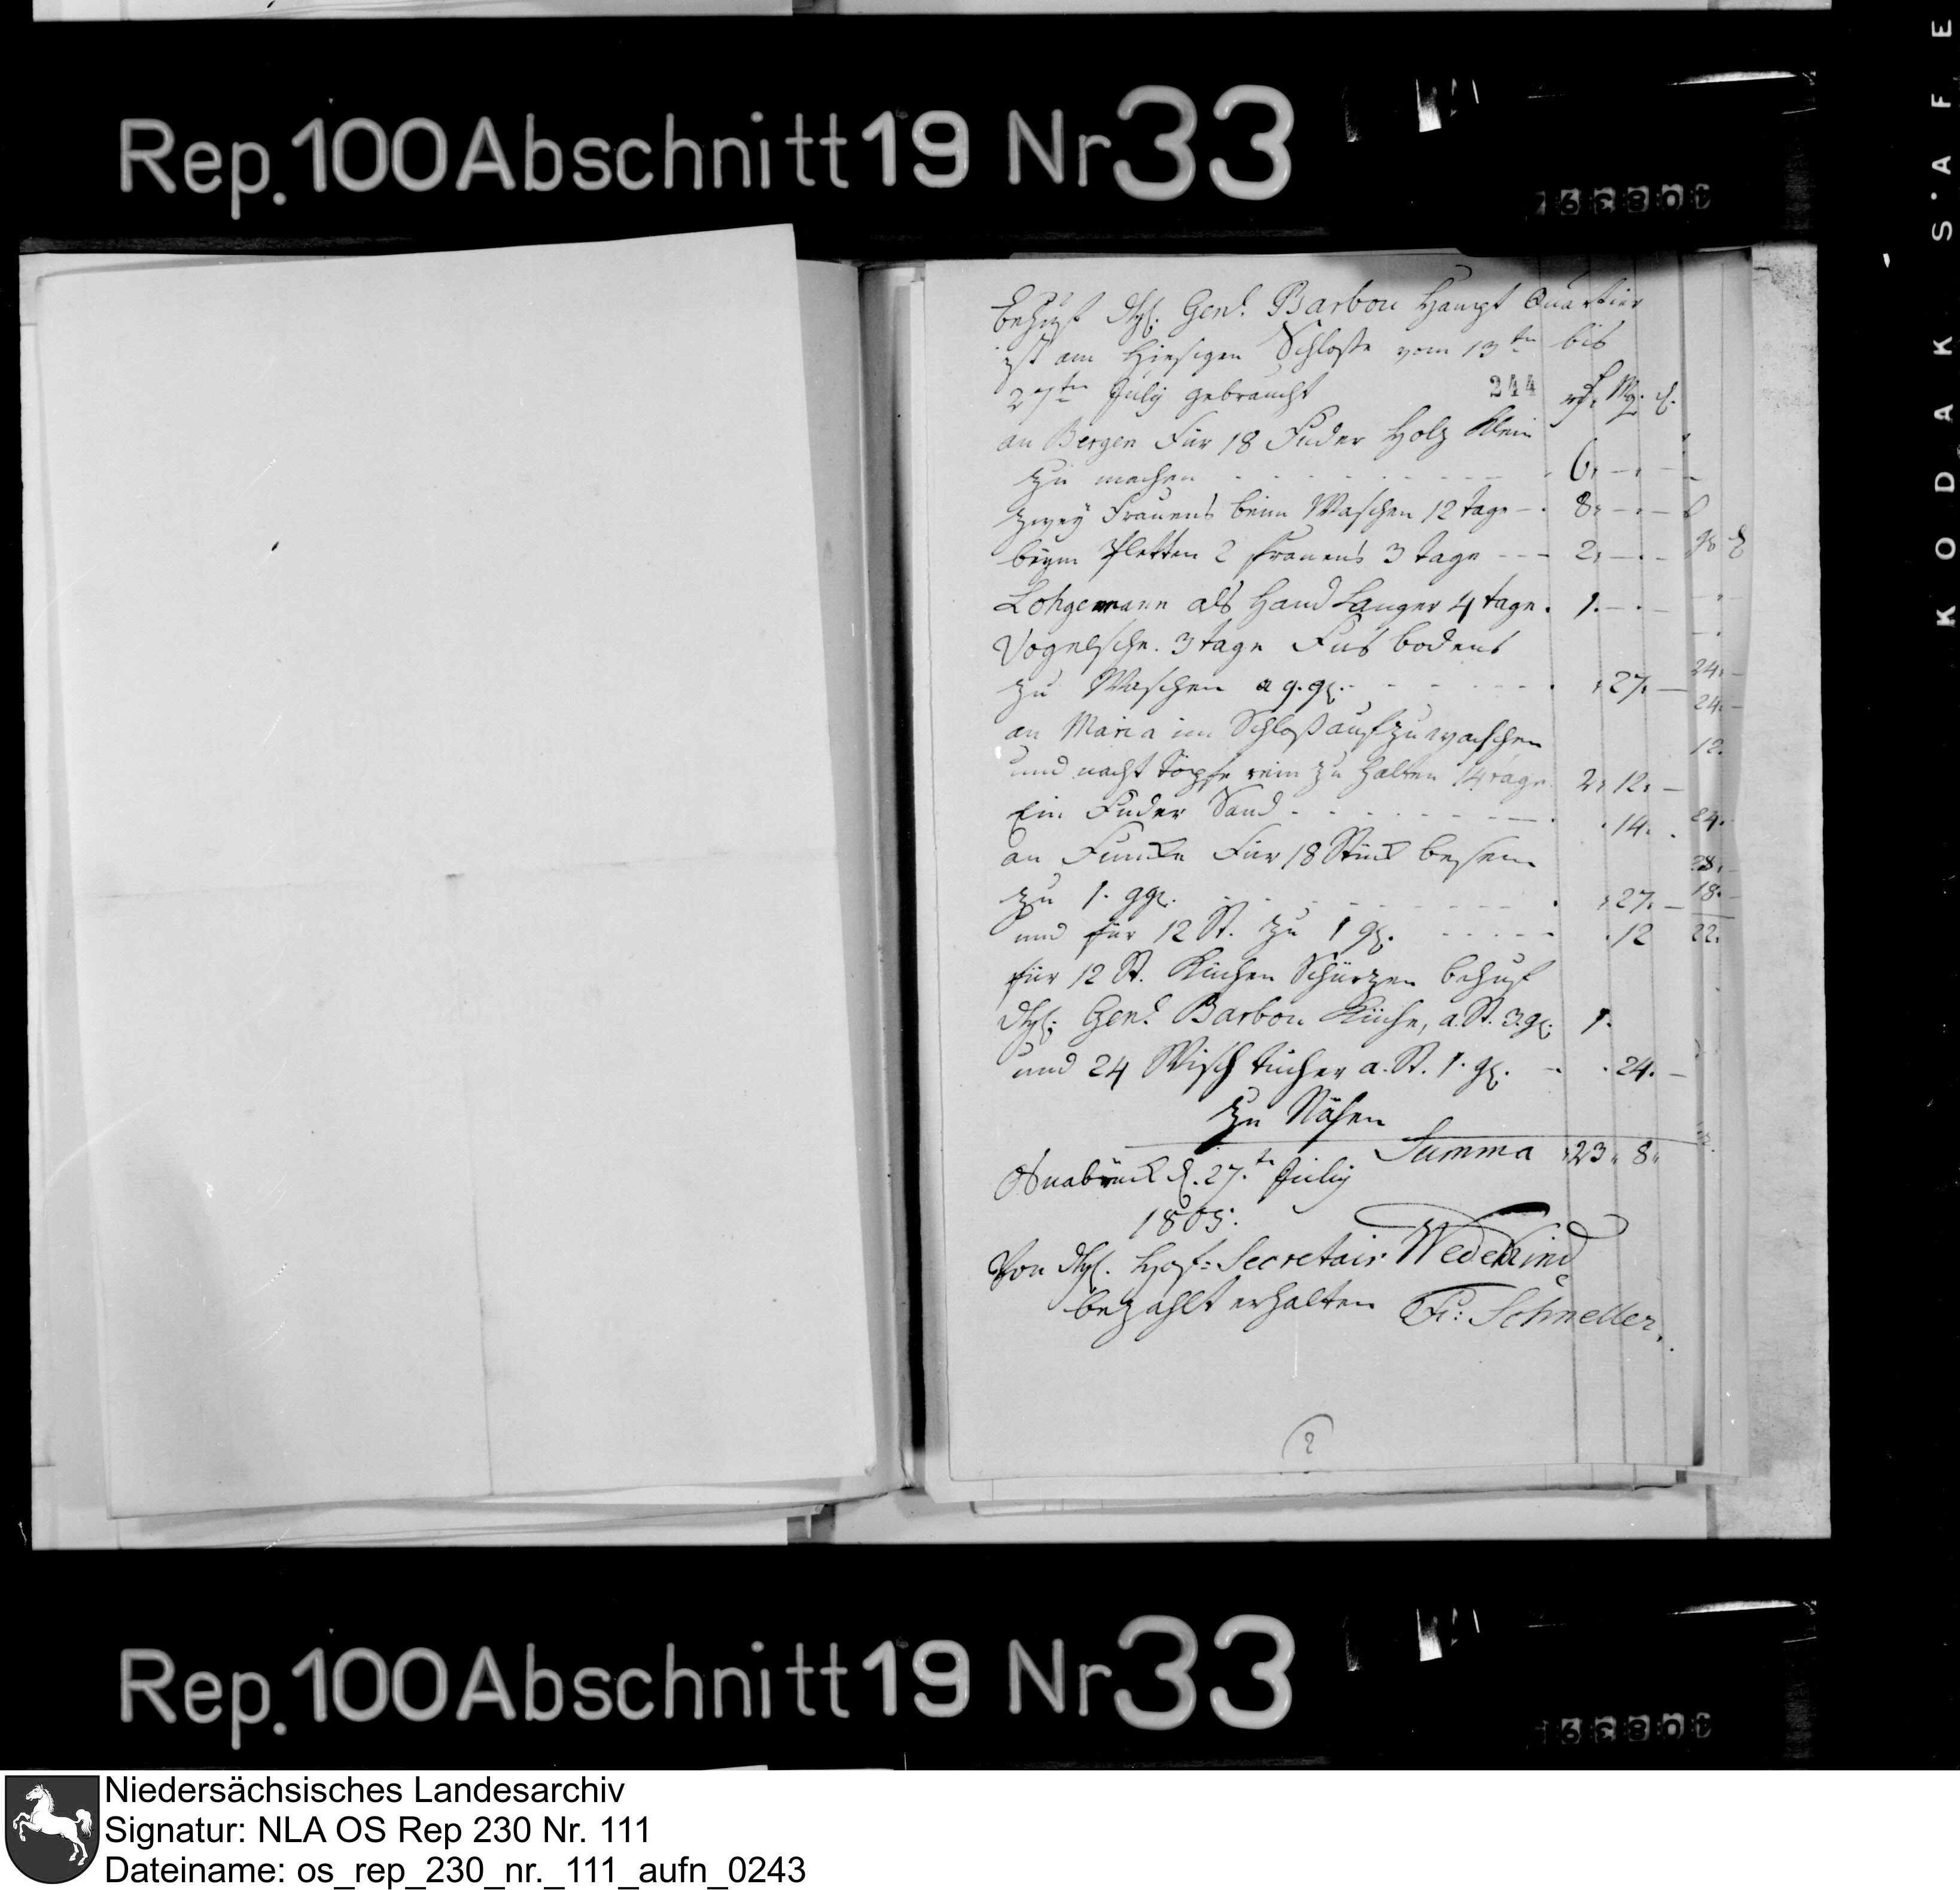 Rep. 100 Abschnitt 19 Nr 33
Behuf H. Genl. Barbou Haupt Quartier
ist am Hiesigen Schloße vom 13tn bis
27tn July gebraucht
244
rh. Mg. d.
an Bergen Für 18 Fuder Holz Klein
zu machen - - - - 6. - . -
zwey Frauens beim Waschen 12 tage - . 8. - . -
beym Pletten 2 frauens 3 tage - - - 2. - . -
Lohgemann als Hand Langer 4 tage . 1. - . -
Vogelsche. 3 tage Fus bodens
zu Waschen a 9. gl. - - - - . 27. -
an Maria im Schloß aufzuwaschen
und nacht töpfe rein zu Halten 14 tage 2. 12. -
Ein Fuder Sand - - - - . 14. .
an Funke Für 18 Stück besem
zu 1. ggl. - - - - . 27. -
und für 12 St. zu 1 gl. - - - - . 12
für 12 St. Küchen Schürzen behuf
H. Genl. Barbou Küche, a. St. 3. gl. 1.
und 24 Wisch tücher a. St. 1. gl. - . 24. -
zu Nähen
Summa 23. 8.
Osnabrück d. 27.tn July
1805.
Von H. Hof: Secretair Wedekind
bezahlt erhalten Fr: Schneller.
gl d
24. -
24. -
12.
24.
28.
18.
22.
2
Rep. 100 Abschnitt 19 Nr 33
KODAK S'AFE
Niedersächsisches Landesarchiv
Signatur: NLA OS Rep 230 Nr. 111
Dateiname: os_rep_230_nr._111_aufn_0243